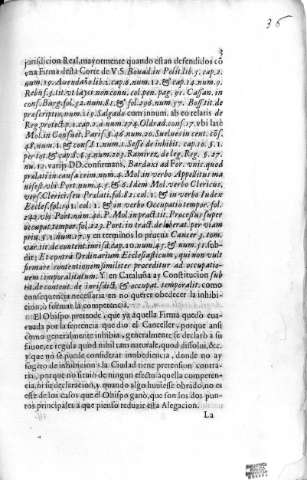 36
3
jurisdicion Real, mayormente quando estàn defendidos cõ
vna Firma desta Corte de V.S. Bouad. in Polit. lib. 2. cap.
num. Auendaño lib. 1. cap. num. 12. & cap. 14. num. 9.
Rebuf. tit. vt layci non conu. col. pen. pag. 91. Cassan. in
cons. Burg. fol. 52. num. 81. & fol. 296. num. 37. Boss. tit. de
num. 15. Salgado cum innum. ab eo relatis de
Reg. protect. p. 1. cap. 2. num. 274. Oldrad. cons. 17. vbi latè
Mol. in Consuet. Paris. §. 46. num. 20. Suelues in cent. cõs.
48. num. 1. & cons. 81. num. 1. Sesse de inhibit. cap. 10. §. 1.
per tot. & cap. 8. §. 3. num. 203. Ramirez, de leg. Reg. §. 27.
num. 12. varijs DD. confirmato, Bardaxi ad For. vnic. quod
prælati in causa crim. num. 4. Mol. in verbo Appellitus ma
nifest. vbi Port. num. 45. & 6. Idem Mol. verbo Clericus,
vers. Clerici seu Prælati, fol. 62. col. 1. & in verbo Iudex
Ecclesi. fol. 191. col. 1. & in verbo Occupatio tempor. fol.
242. vbi Port. num. 40. P. Mol. in pract. tit. Processus super
occupat. tempor. fol. 223. Port. in tract. de liberat. per viam
priu. §. 1. num. 17. y en terminos lo pro
var. tit. de content. iurisd. cap. 10. num. 45. & num. 51. sub-
dit; Et contrà Ordinarium Ecclesiasticum, qui non vult
firmare contentionem similiter proceditur ad occupatio-
nem temporalitatum. Y en Cataluña ay Constitucion sub
tit. de content. de iurisdict. & occupat. temporalit. como
consequencia necessaria en no querer obedecer la inhibi-
cion, ò formar la competencia.
El Obispo pretende, que yà aquella Firma quedò eua-
cuada por la sentencia que diò el Canceller, porque ansi
como generalmente inhibia, generalmente se declarò à su
fauor, ex regula quod nihil tam naturale, quod dissolui, &c.
y que no se puede considerar inobediencia, donde no ay
sugeto de inhibicion, la Ciudad tiene pretension contra-
ria, porque no siruiò de ningun efecto aquella competen-
cia, ni su declaracion, y quando algo huuiesse obrado, no es
este de los casos que el Obispo ganò, que son los dos pun-
tos principales à que pienso reducir esta Alegacion.
La